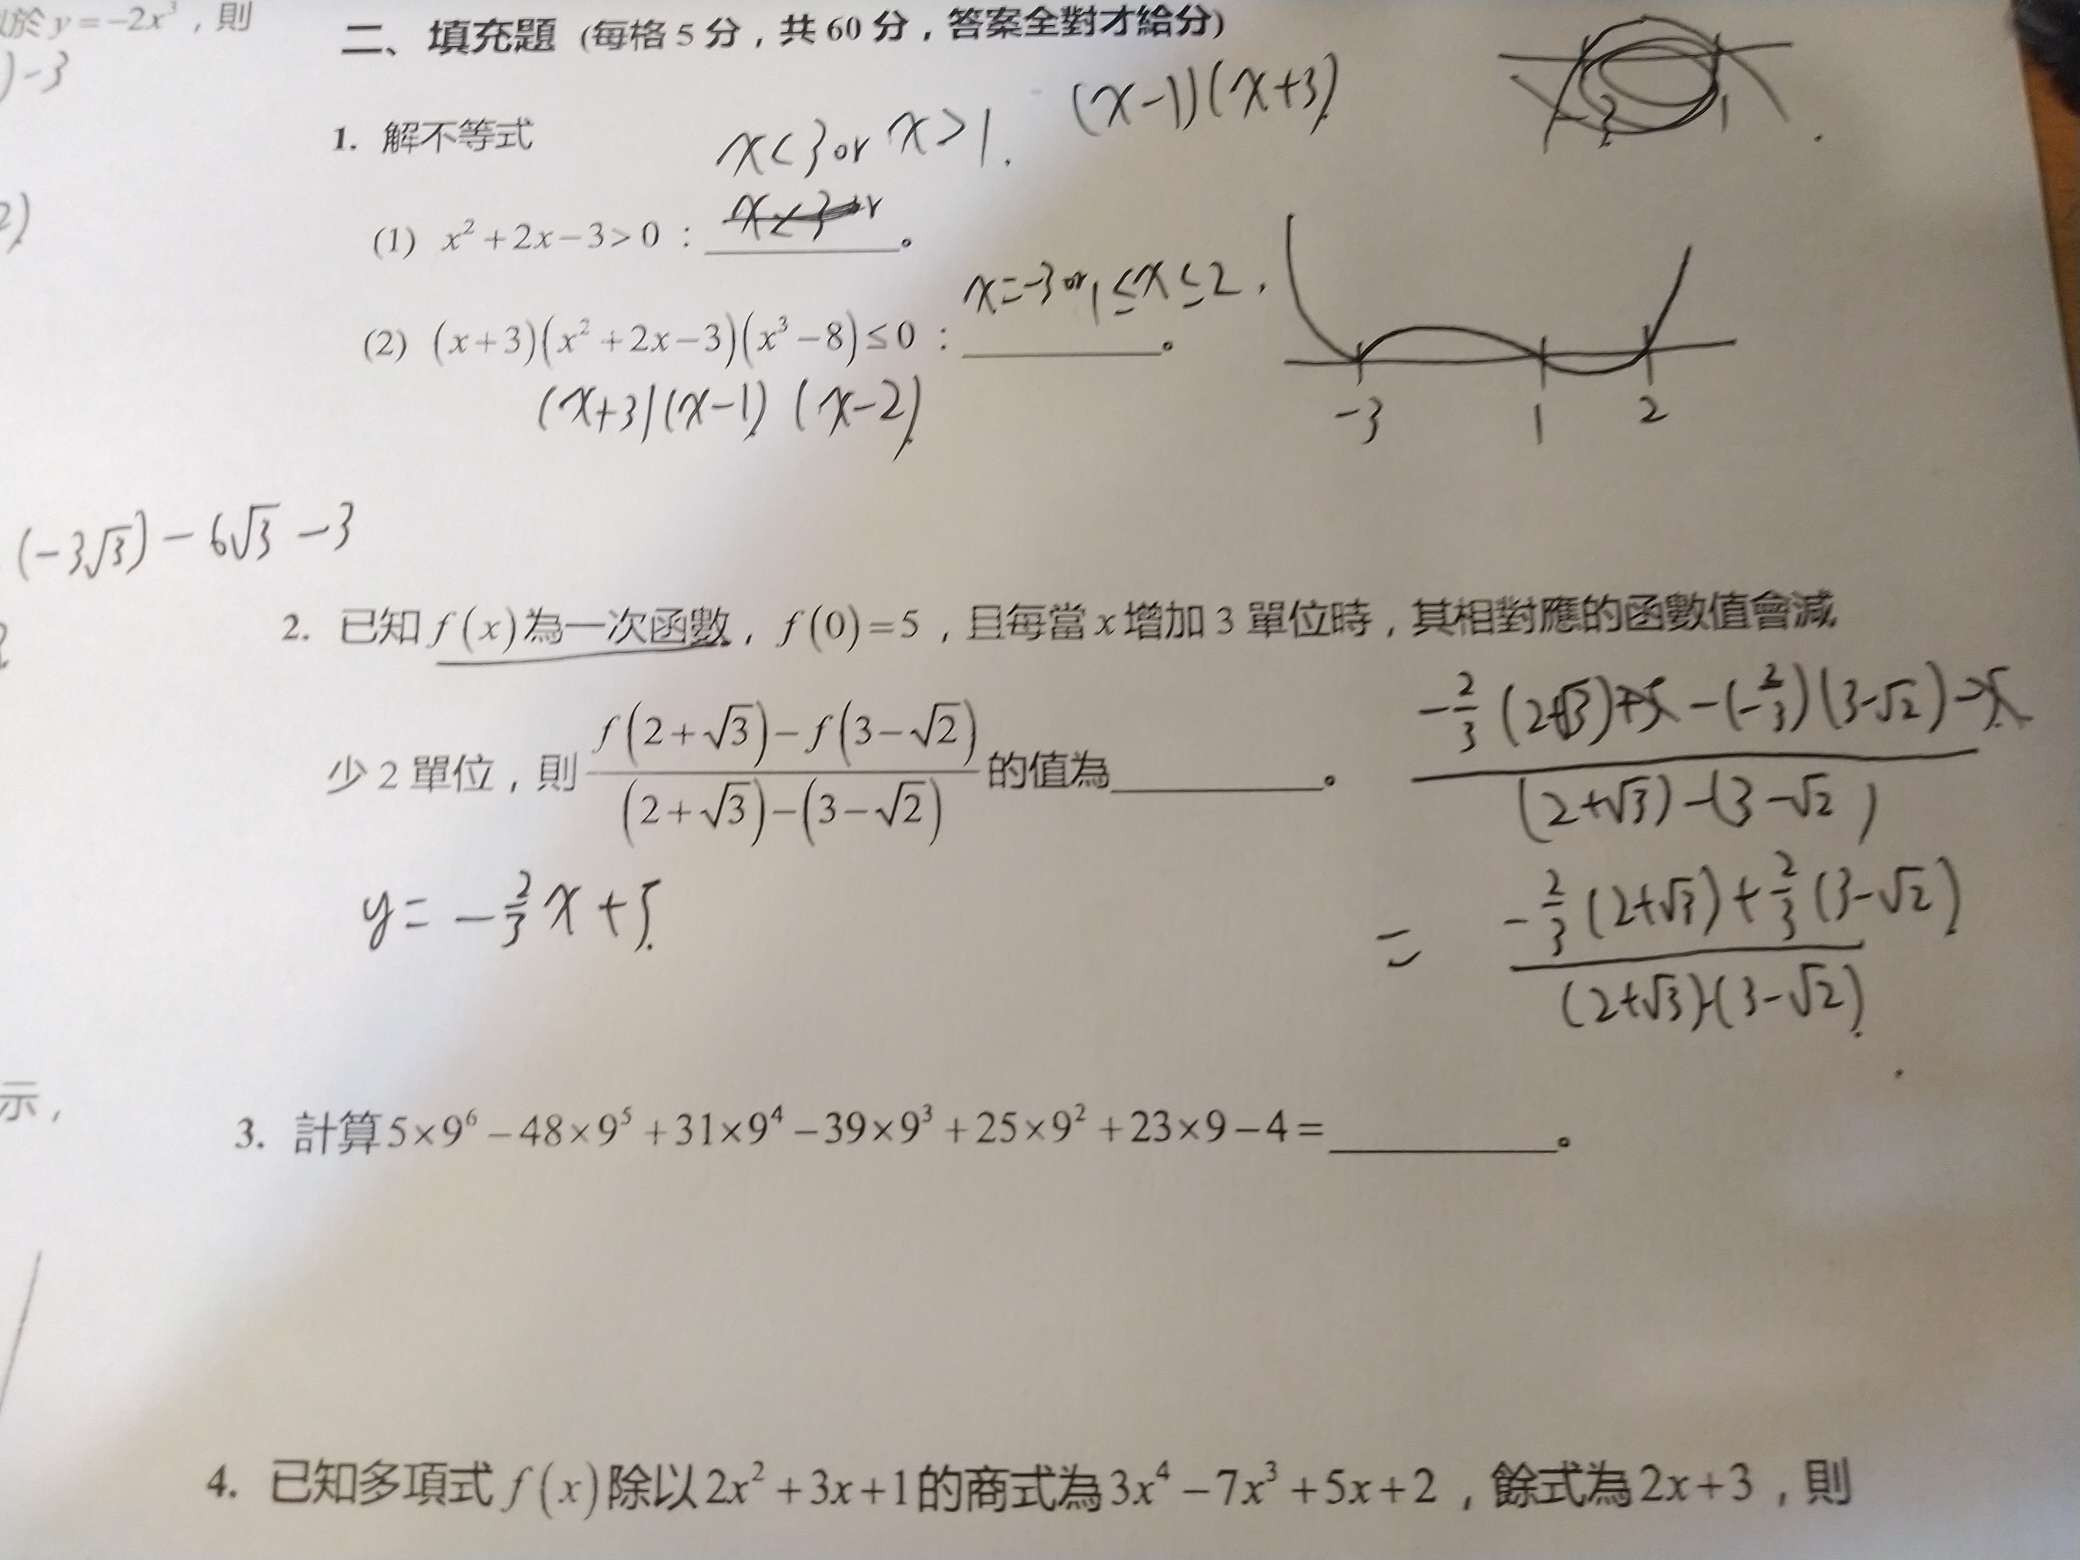 於 y = -2x³，則
)-3
二、填充題 (每格 5 分，共 60 分，答案全對才給分)
(x-1)(x+3)
1. 解不等式
x<3 or x>1.
-3 1
2)
(1) x²+2x-3>0：x<3 or。
x=-3 or 1≤x≤2,
(2) (x+3)(x²+2x-3)(x³-8)≤0：______。
(x+3)(x-1)(x-2)
-3 1 2
(-3√3)-6√3-3
2. 已知 f(x) 為一次函數，f(0)=5，且每當 x 增加 3 單位時，其相對應的函數值會減
少 2 單位，則 (f(2+√3)-f(3-√2))/((2+√3)-(3-√2)) 的值為______。
(-2/3(2+√3)+5-(-2/3)(3-√2)-5)/((2+√3)-(3-√2))
y=-2/3x+5
= (-2/3(2+√3)+2/3(3-√2))/((2+√3)-(3-√2))
示，
3. 計算 5×9⁶-48×9⁵+31×9⁴-39×9³+25×9²+23×9-4=______。
4. 已知多項式 f(x) 除以 2x²+3x+1 的商式為 3x⁴-7x³+5x+2，餘式為 2x+3，則